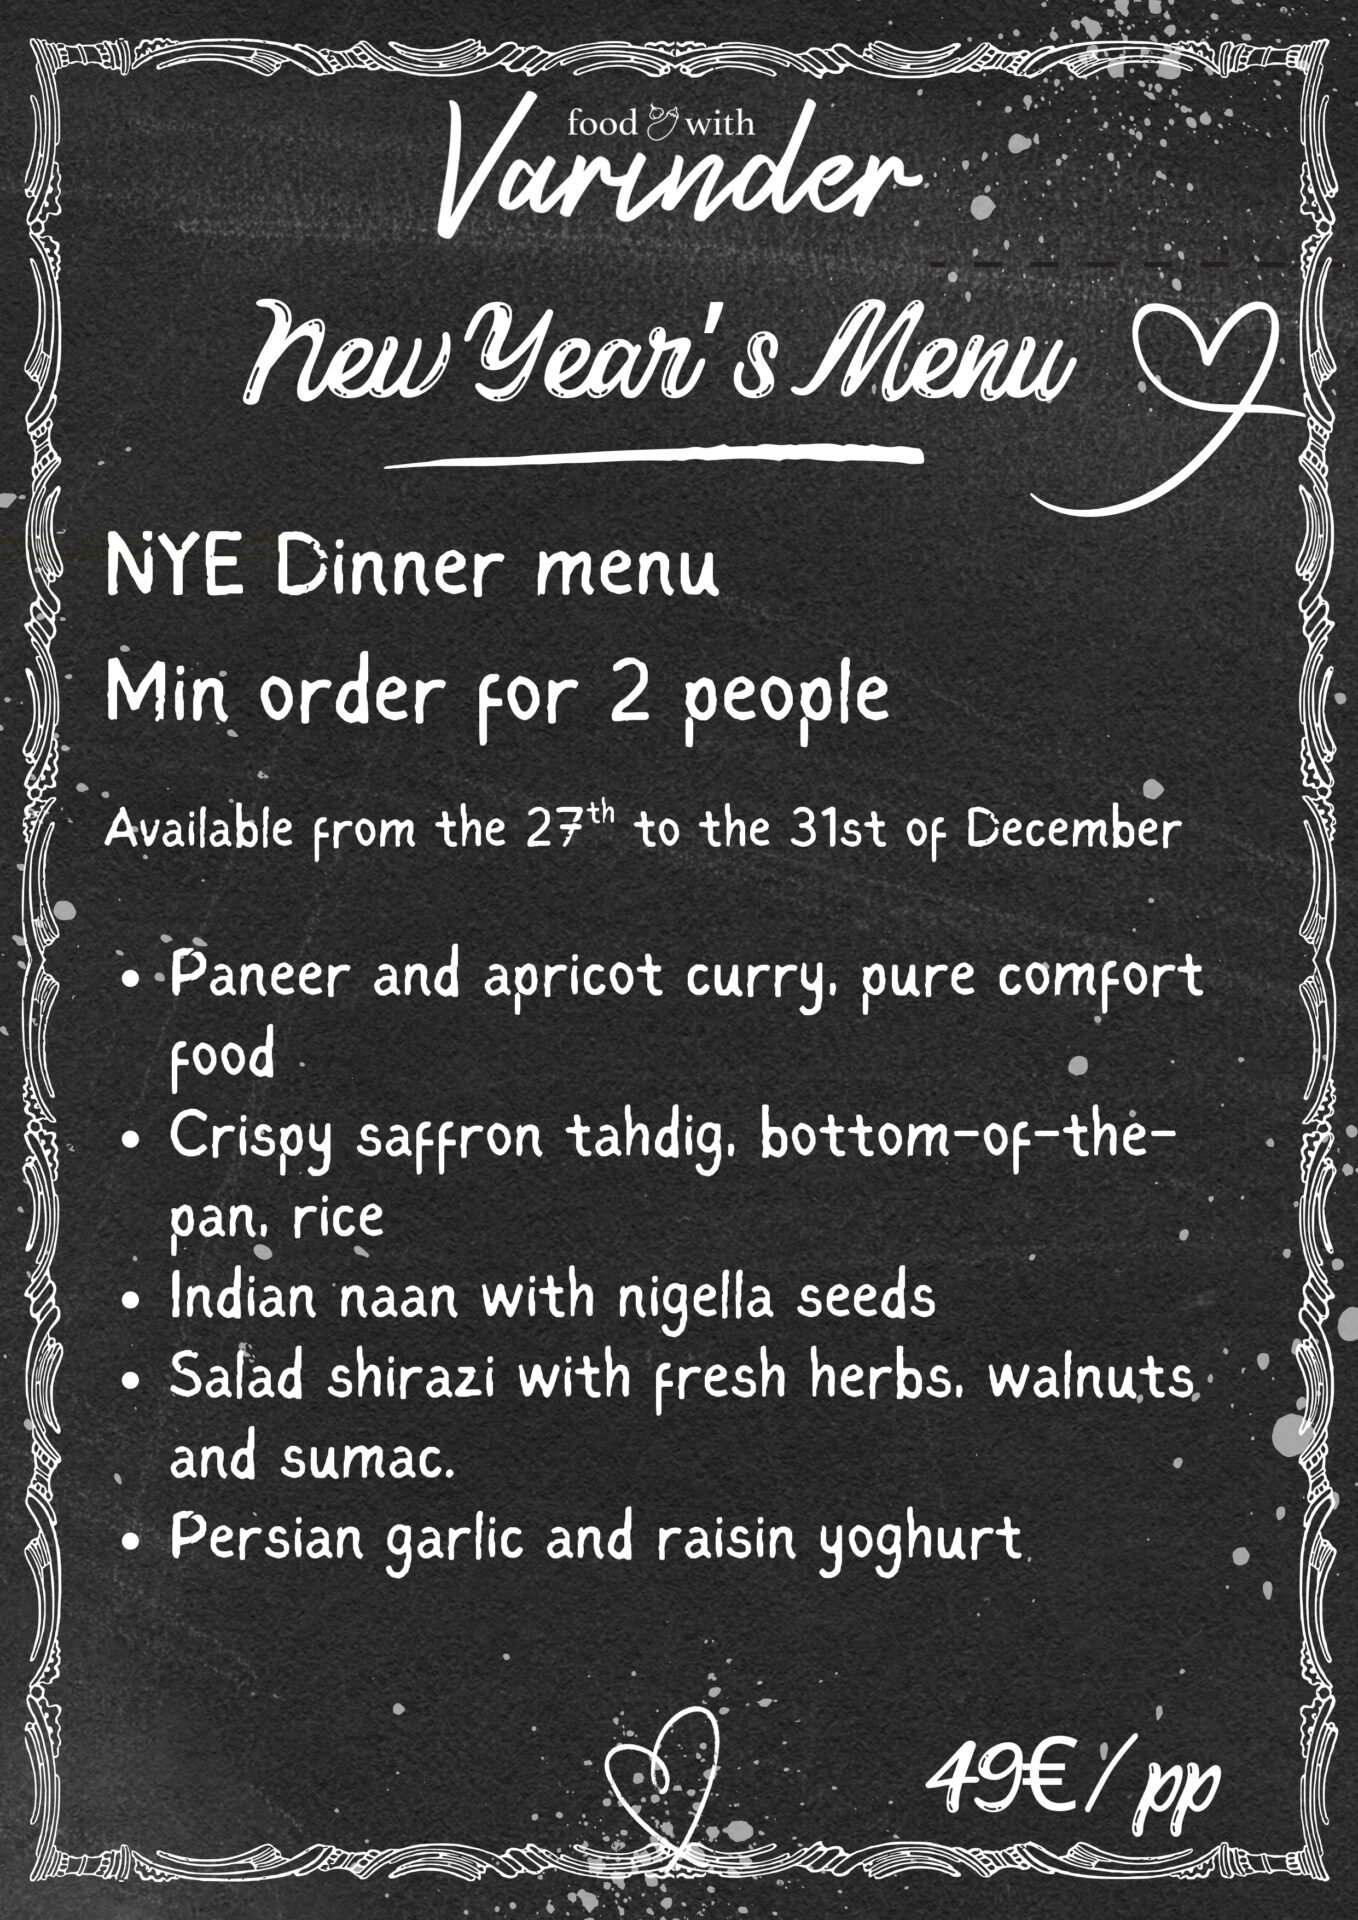 food with
Varinder
New Year's Menu
NYE Dinner menu
Min order for 2 people
Available from the 27th to the 31st of December
• Paneer and apricot curry, pure comfort
food
• Crispy saffron tahdig, bottom-of-the-
pan, rice
• Indian naan with nigella seeds
• Salad shirazi with fresh herbs, walnuts
and sumac.
• Persian garlic and raisin yoghurt
49€/pp